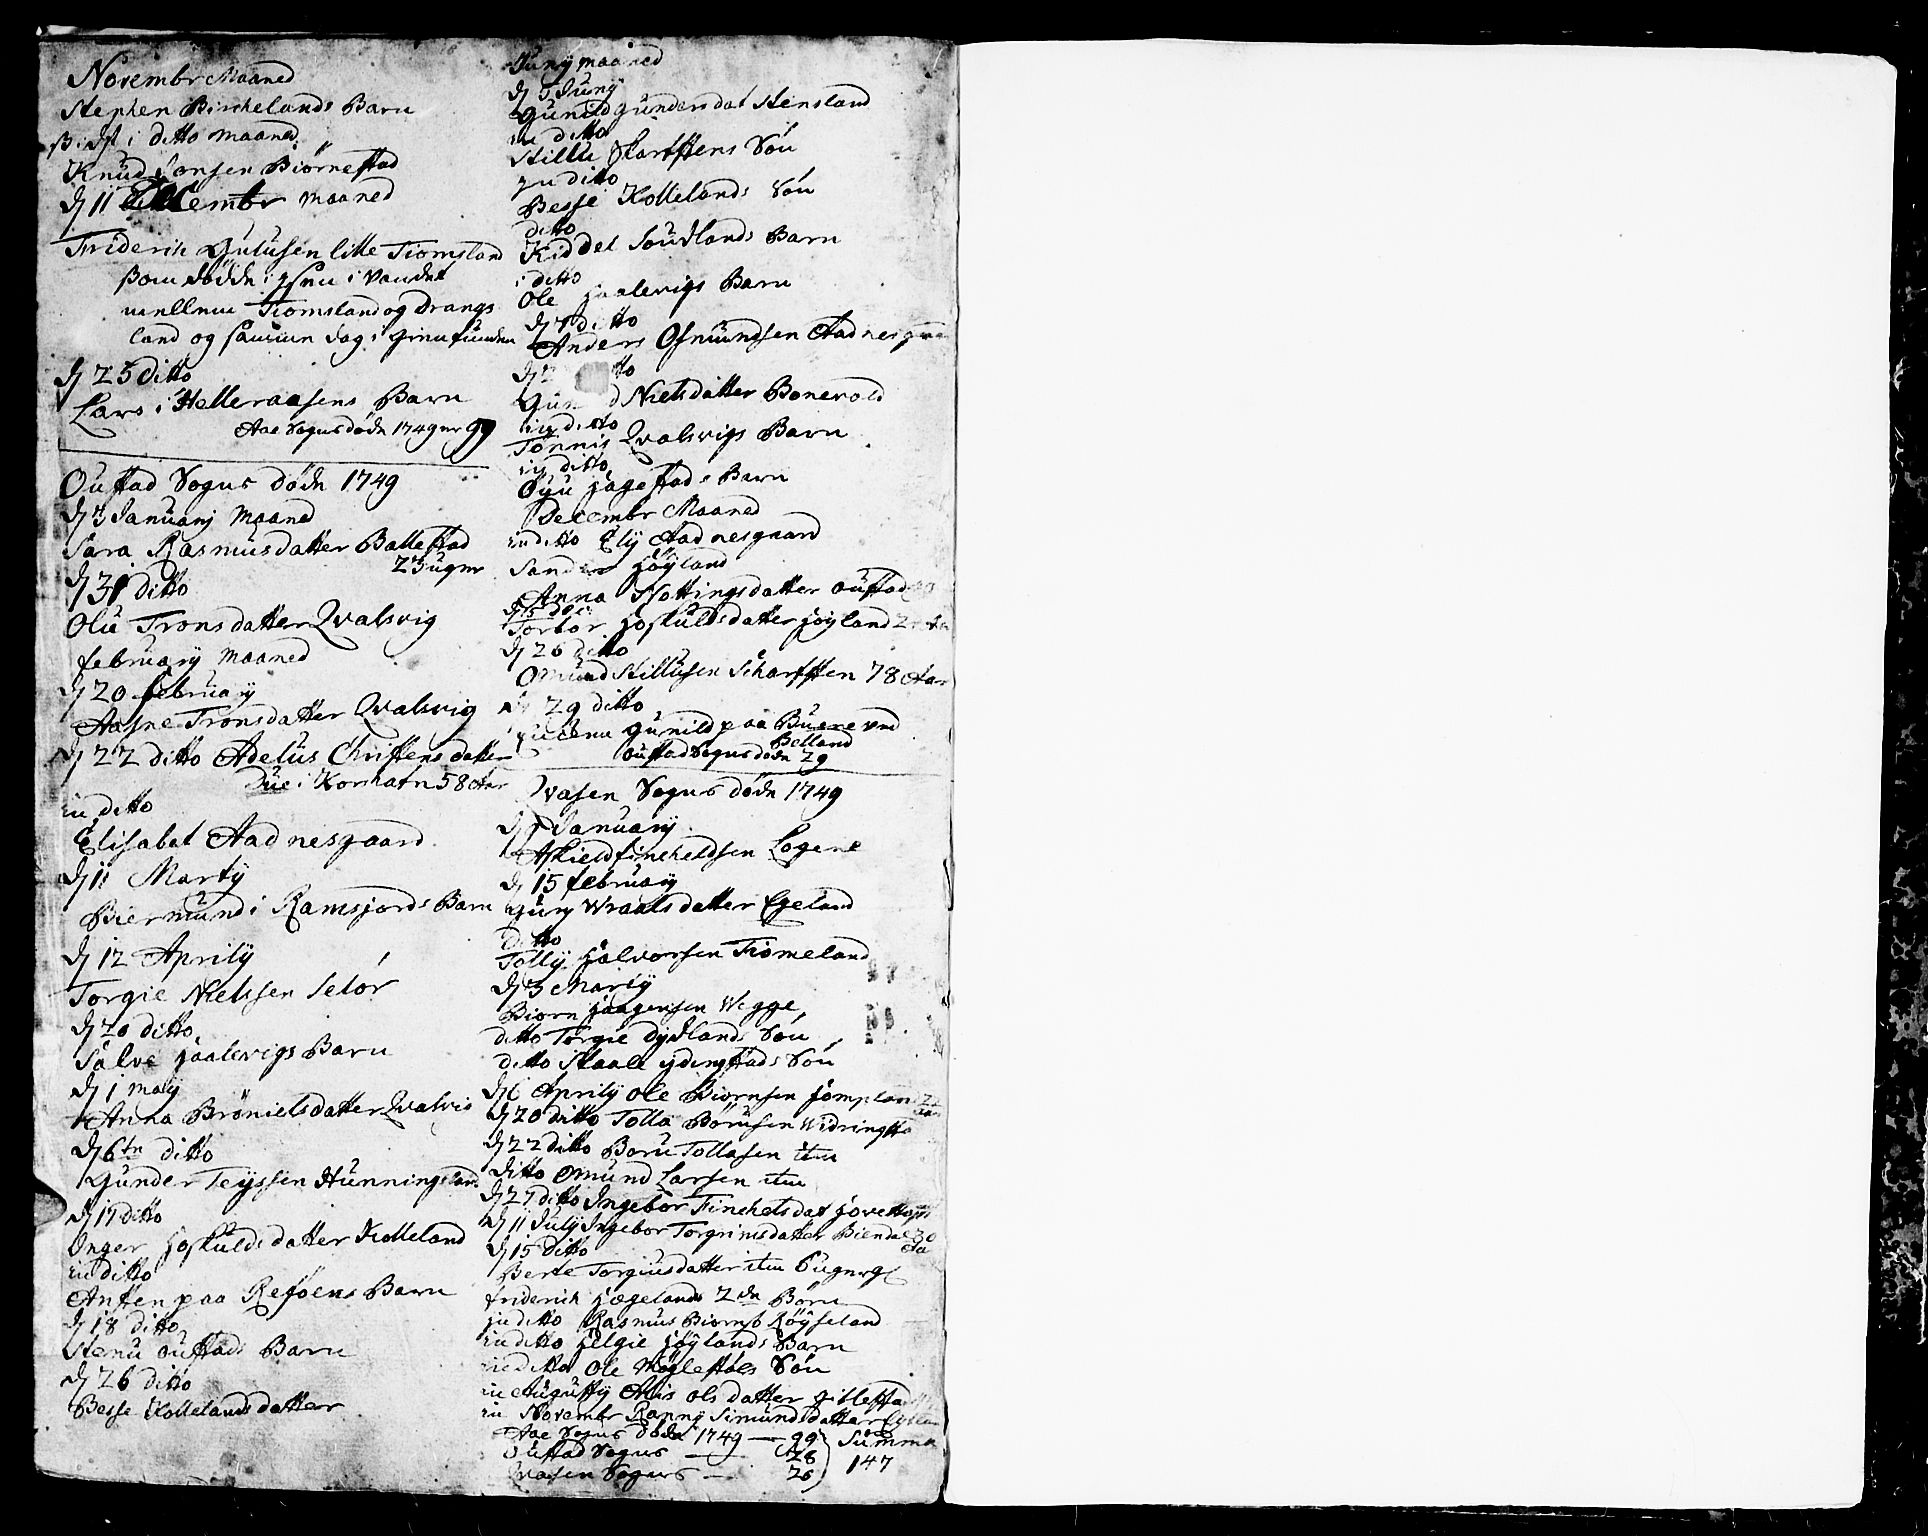 Novembr Maaned
Stephen Birchelands Barn
Sidst i ditto Maaned
Knud Jonsen Biörnestad
d 11 Decembr maaned
Friderik Gulusen lille Tiomsland
Som dödde i Isen i Vandet
mellem Tiomsland og Drangs
land og samme dag igienfunden
d 25 ditto
Lars i Helleraasens Barn
Aae Sogns döde 1749 er 99
Oufstad Sogns döde 1749
d 3 January Maaned
Sara Rasmusdatter Ballestad
23 uger
d 31 ditto
Olu Tronsdatter Qvalsvig
february Maaned
d 20 february
Aasne Tronsdatter Qvalsvig
d 22 ditto Adelus Christensdatter
Due i Korshavn 58 Aar
in ditto
Elisabet Aadnesgaard
d 11 Marty
Biermund i Ramsjords Barn
d 12 Aprily
Torgie Nielsen Selör
d 20 ditto
Salve Haalevigs Barn
d 1 maij
Anna Brönielsdatter Qvalvig
d 6te ditto
Gunder Teyssen Hunningsland
d 17 ditto
Unger Hoskuldsdatter Kolleland
in ditto
Ansten paa Refsöens Barn
d 18 ditto
Stenu Oufstads Barn
d 26 ditto
Besse Kollelands datter
Juny maaned
d 5 Juny
Gunild Gundersdat Stensland
in ditto
Stillu Skarfstens Sön
in ditto
Besse Kollelands Sön
ditto
Kiddel Soudlands Barn
i ditto
Ole Haalevigs Barn
d 7 ditto
Anders Osmundsen Aadnesgaa
d 2 tto
Gun d Nielsdatter Bonevold
in ditto
Tönnis Qvalsvigs Barn
in ditto
Öyu Hagestads Barn
Decembr Maaned
in ditto Ely Aadnesgaard
Sander Höyland
Anna Nottingsdatter Oufstad
d 15 Dec
Torbor Hoskuldsdatter Höyland
d 26 ditto
Omund Stillusen Scharfsten 78 Aar
29 ditto
Gunild paa Buene ved
Belland
Oufstad Sogns döde 29
Qvasen Sogns döde 1749
d 1 January
Askield fincheldsen Logene
d 15 february
Gury Wraalsdatter Egeland
ditto
Tolly Halvorsen Tiomeland
d 3 Marty
Biorn Haagensen Wegge
ditto Torgie Dydlands Sön
ditto Staale Ydingstads Sön
d 6 Aprily Ole Biornsen Hompland
d 20 ditto Tolla Börusen Widringsta
d 22 ditto Boru Tollasen item
ditto Omund Larsen item
d 27 ditto Ingebor Finchelsdat
d 11 July Ingebor Torgrimsdatter Biendal 30
Aa
d 15 ditto
Berte Torgiusdatter item 6 uger gl
friderich Hægelands 2de Börn
in ditto Rasmus Biorns Röyseland
in ditto Helgie Höylands Barn
in ditto Ole Möglestöls Sön
in Augusty Anis Olsdatter Giblestad
in Novembr Ranny Simundsdatter
Aae Sogns döde 1749 — 99 Summa
Oufstad Sogns — 28
147
Qvasen Sogns — 26